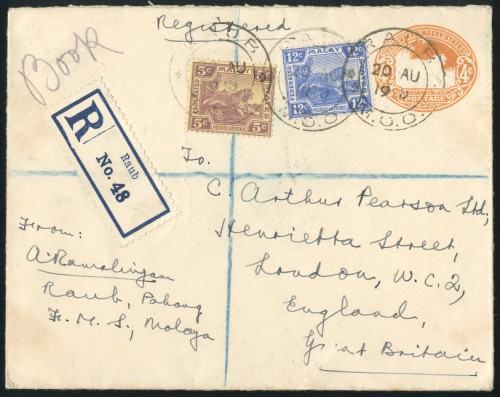 Registered
Book
RAUB
AU
5c
MALAY
5c
12c
MALAY
12c
12c
RAUB
20 AU
19
M.C.O.
MALAY STATES
4c
R
Raub
No. 48
To.
C Arthur Pearson Ltd,
Henrietta Street,
London, W.C.2,
England,
Great Britain
From:
A. Ramalingam
Raub, Pahang
F. M. S., Malaya